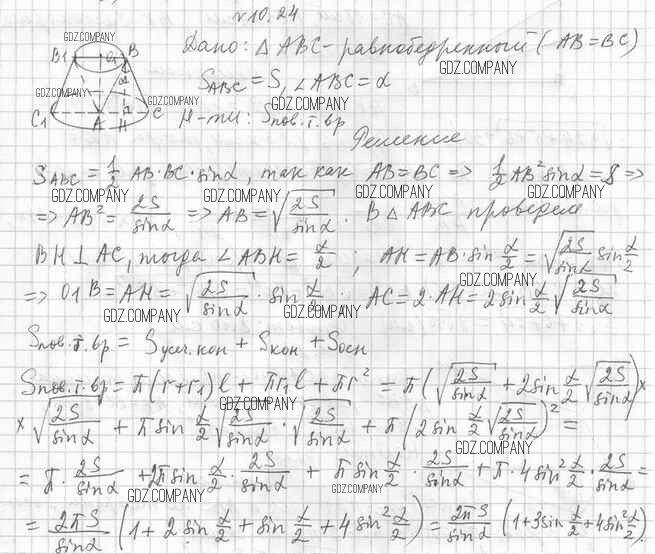 №10.24
GDZ.COMPANY
Дано: △ABC - равнобедренный (AB=BC)
GDZ.COMPANY
B1 O1 B
S_ABC = S, ∠ABC = α
GDZ.COMPANY
GDZ.COMPANY
C1 A H C
Н-ти: Sпов.т.вр
GDZ.COMPANY
Решение
S_ABC = 1/2 AB·BC·sinα, так как AB=BC => 1/2 AB² sinα = S =>
GDZ.COMPANY GDZ.COMPANY GDZ.COMPANY GDZ.COMPANY
=> AB² = 2S/sinα => AB = √(2S/sinα). В △ABC проведем
BH⊥AC, тогда ∠ABH = α/2; AH = AB·sin α/2 = √(2S/sinα) sin α/2
GDZ.COMPANY
=> O1B = AH = √(2S/sinα) · sin α/2; AC = 2·AH = 2sin α/2 √(2S/sinα)
GDZ.COMPANY GDZ.COMPANY GDZ.COMPANY
Sпов.т.вр = Sусеч.кон + Sкон + Sосн
Sпов.т.вр = π(r+r1)l + πr1l + πr² = π(√(2S/sinα) + 2sin α/2 √(2S/sinα))×
GDZ.COMPANY
× √(2S/sinα) + π sin α/2 √(2S/sinα) · √(2S/sinα) + π(2sin α/2 √(2S/sinα))² =
GDZ.COMPANY
= π· 2S/sinα + 2π sin α/2 · 2S/sinα + π sin α/2 · 2S/sinα + π·4sin² α/2 · 2S/sinα =
GDZ.COMPANY GDZ.COMPANY
= 2πS/sinα (1 + 2sin α/2 + sin α/2 + 4sin² α/2) = 2πS/sinα (1+3sin α/2 + 4sin² α/2).